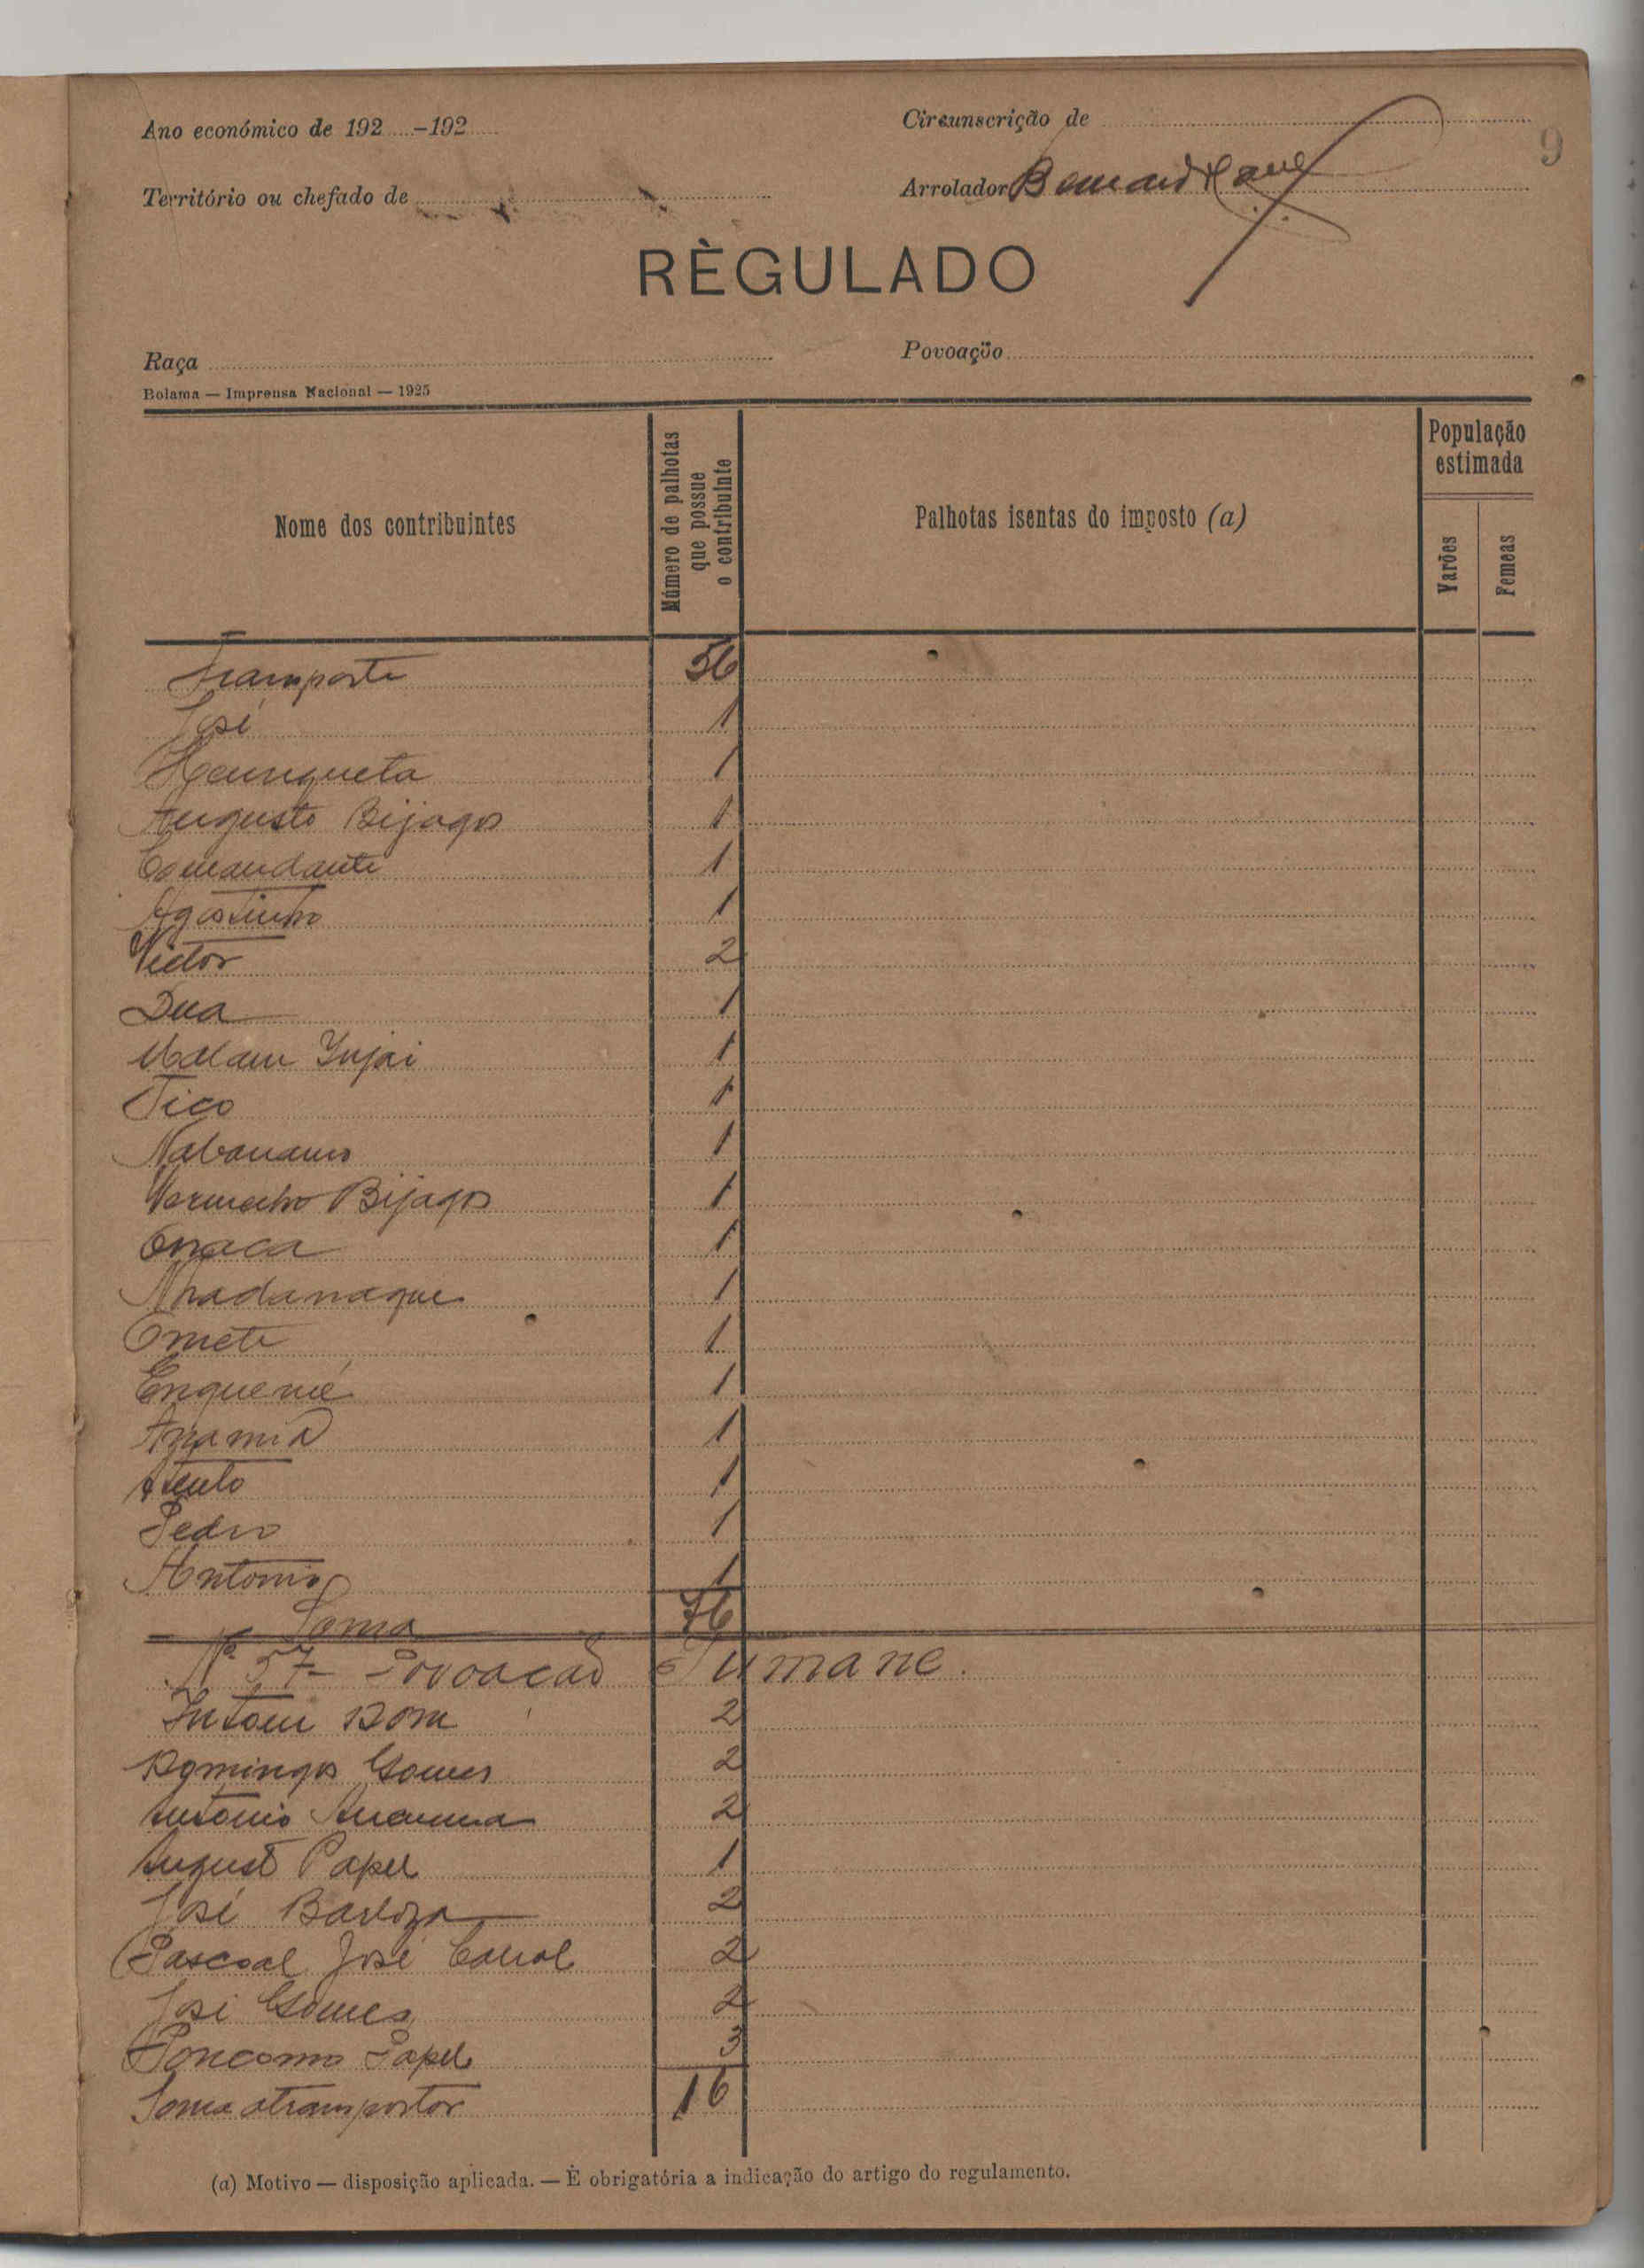 Ano económico de 192 -192
Circunscrição de
9
Território ou chefado de
Arrolador
RÈGULADO
Raça
Povoação
Bolama — Imprensa Nacional — 1925
Nome dos contribuintes
Número de palhotas que possue o contribuinte
Palhotas isentas do imposto (a)
População estimada
Varões
Femeas
Transporte 56
José 1
Henriqueta 1
Augusto Bijagos 1
Comandante 1
Agostinho 1
Victor 2
Dua 1
Malam Injai 1
Tico 1
1
Vermelho Bijagos 1
Onaca 1
Nhadanaque 1
Omete 1
Enquemé 1
1
1
Pedro 1
Antonio 1
Soma 76
Nº 57- Povoacão Tumane.
Intoni Dom 2
Domingos Gomes 2
Antonio 2
August Papel 1
José Barboza 2
Pascoal José Cabral 2
José Gomes 2
Papel 3
Soma atransportar 16
(a) Motivo — disposição aplicada. — È obrigatória a indicação do artigo do regulamento.